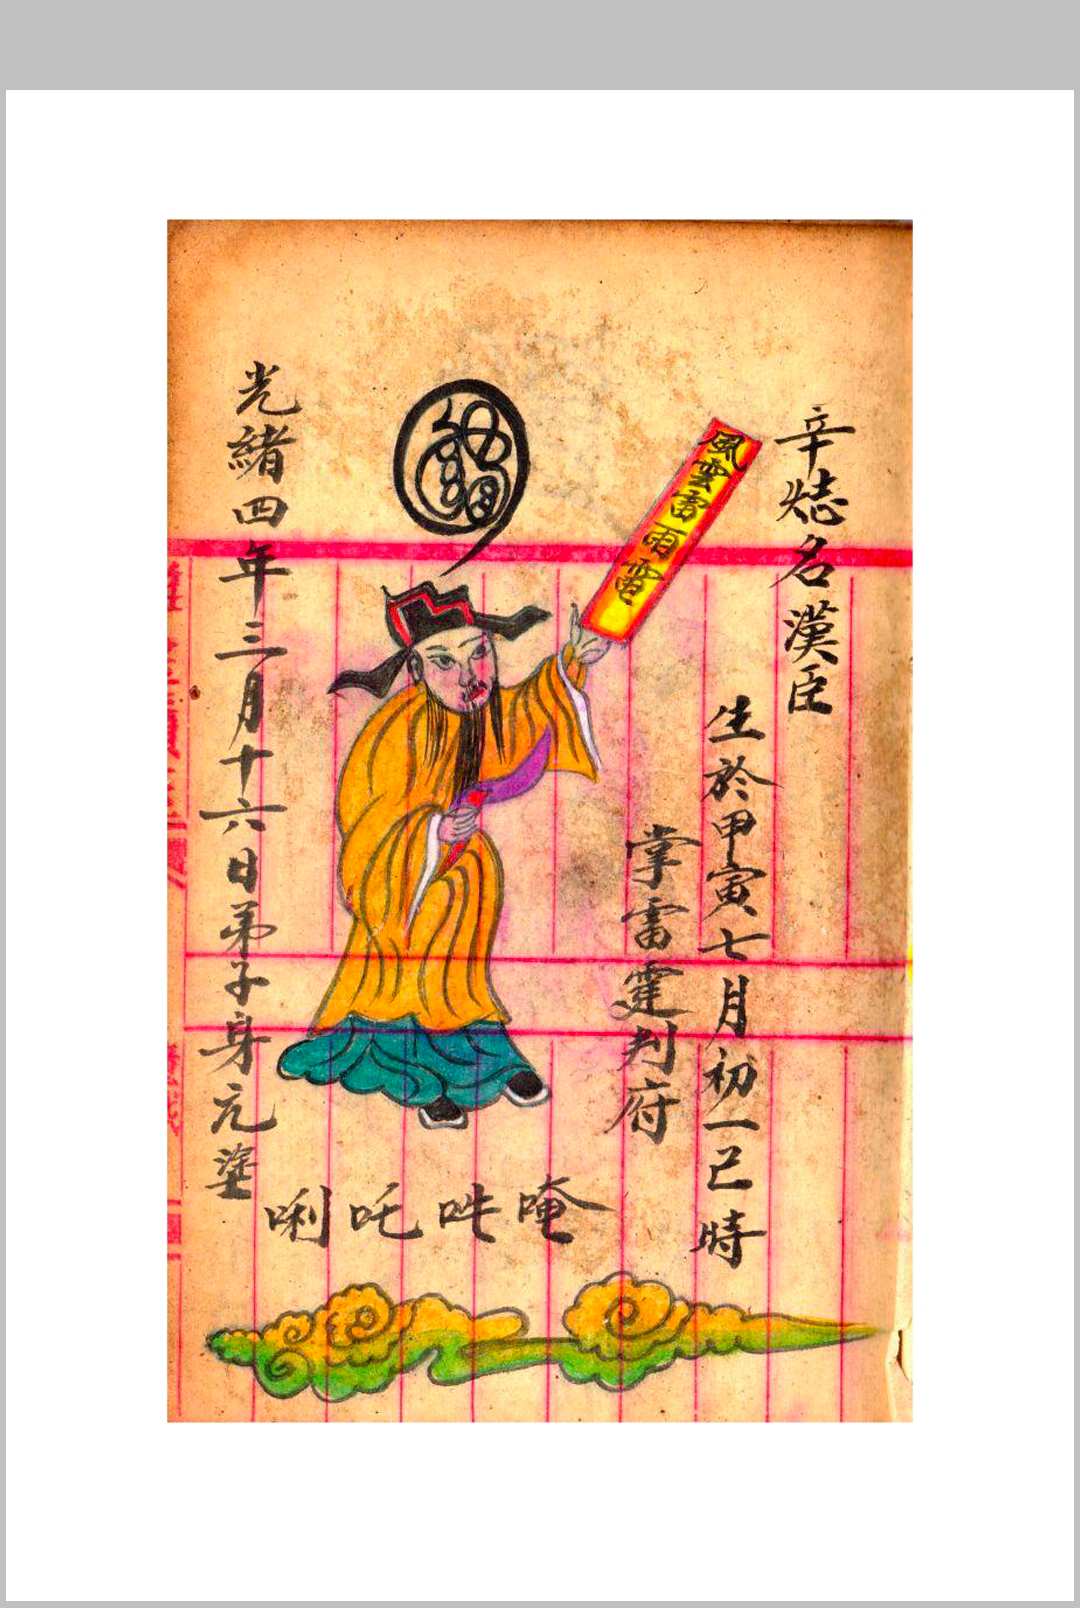 辛㷓名漢臣
生於甲寅七月初一己時
掌雷霆判府
風雲雷雨雷
唵吽吒唎
光緒四年三月十六日弟子身元塗